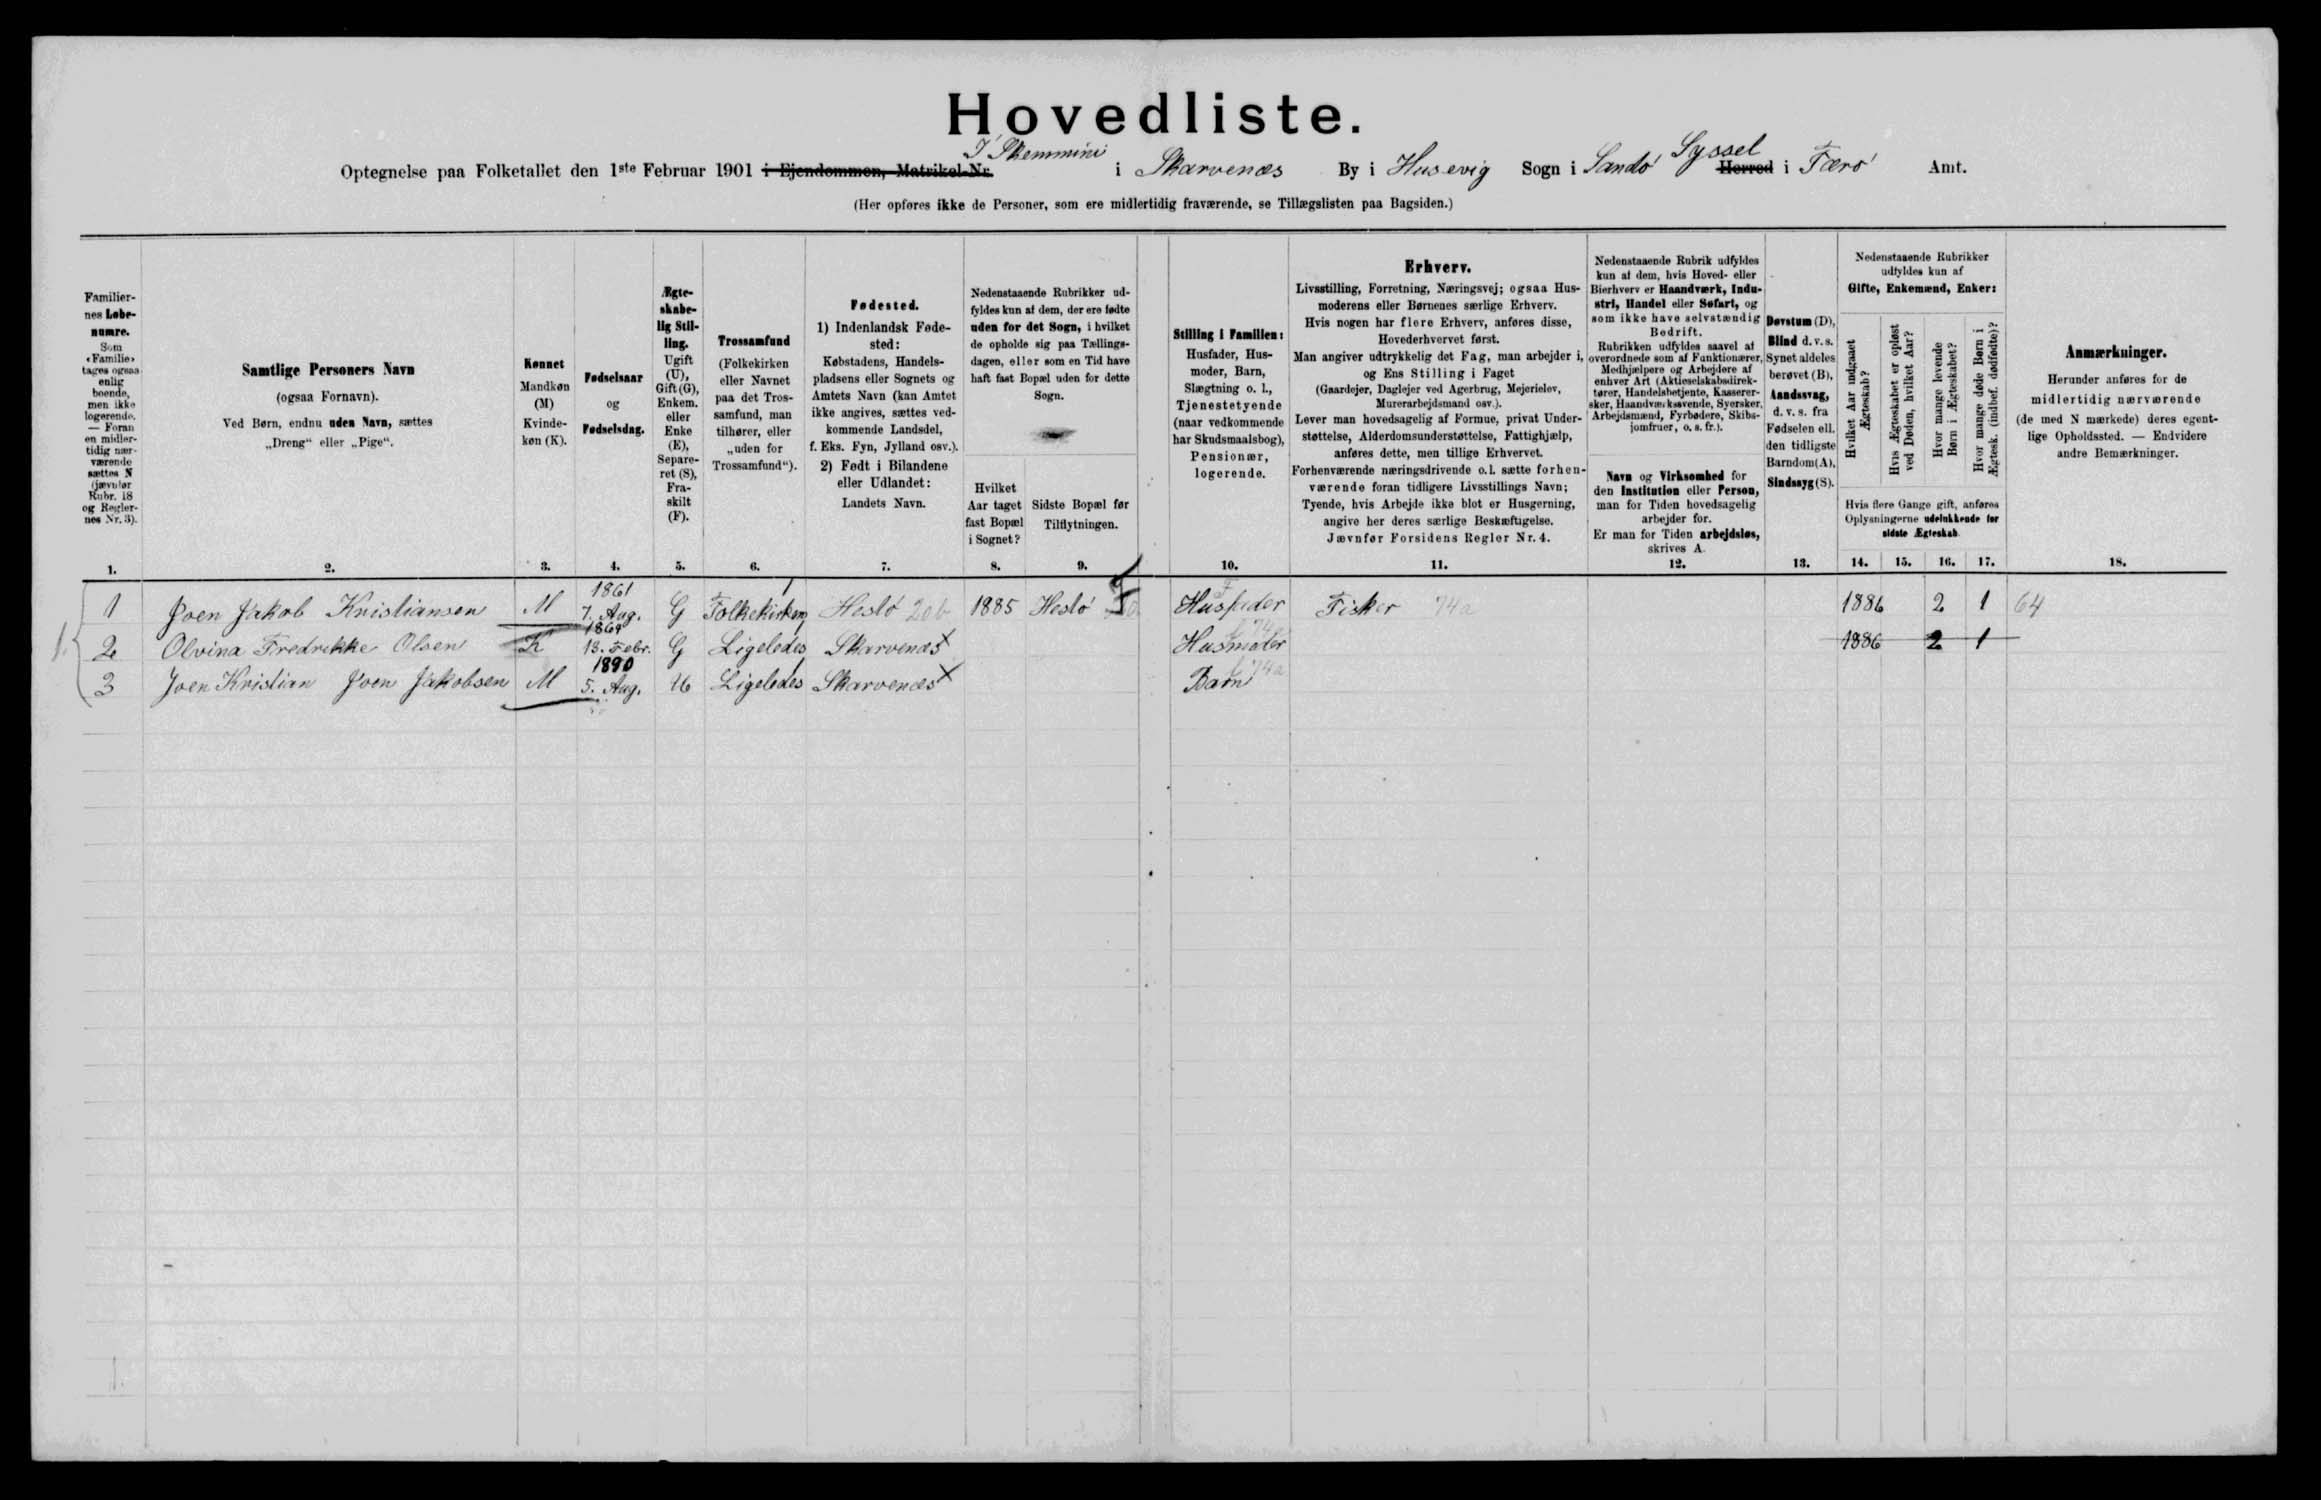 Hovedliste.
I Skemmini
Syssel
Optegnelse paa Folketallet den 1ste Februar 1901 i Ejendommen, Matrikel-Nr. i Skarvenæs By i Husevig Sogn i Sandö Herred i Færö Amt.
(Her opføres ikke de Personer, som ere midlertidig fraværende, se Tillægslisten paa Bagsiden.)
Familier-
nes Løbe-
numre.
Som
«Familie»
tages ogsaa
enlig
boende,
men ikke
logerende.
— Foran
en midler-
tidig nær-
værende
sættes N
(jævnfør
Rubr. 18
og Regler-
nes Nr. 3).
1.
Samtlige Personers Navn
(ogsaa Fornavn).
Ved Børn, endnu uden Navn, sættes
„Dreng“ eller „Pige“.
2.
Kønnet
Mandkøn
(M)
Kvinde-
køn (K).
3.
Fødselsaar
og
Fødselsdag.
4.
Ægte-
skabe-
lig Stil-
ling.
Ugift
(U),
Gift (G),
Enkem.
eller
Enke
(E),
Separe-
ret (S),
Fra-
skilt
(F).
5.
Trossamfund
(Folkekirken
eller Navnet
paa det Tros-
samfund, man
tilhører, eller
„uden for
Trossamfund“).
6.
Fødested.
1) IndenlandskFøde-
sted:
Købstadens, Handels-
pladsens eller Sognets og
Amtets Navn (kan Amtet
ikke angives, sættes ved-
kommende Landsdel,
f. Eks. Fyn, Jylland osv.).
2) Født i Bilandene
eller Udlandet:
Landets Navn.
7.
Nedenstaaende Rubrikker ud-
fyldes kun af dem, der ere fødte
uden for det Sogn, i hvilket
de opholde sig paa Tællings-
dagen, eller som en Tid have
haft fast Bopæl uden for dette
Sogn.
Hvilket
Aar taget
fast Bopæl
i Sognet?
8.
Sidste Bopæl før
Tilflytningen.
9.
Stilling i Familien:
Husfader, Hus-
moder, Barn,
Slægtning o. l.,
Tjenestetyende
(naar vedkommende
har Skudsmaalsbog),
Pensionær,
logerende.
10.
Erhverv.
Livsstilling, Forretning, Næringsvej; ogsaa Hus-
moderens eller Børnenes særlige Erhverv.
Hvis nogen har flere Erhverv, anføres disse,
Hovederhvervet først.
Man angiver udtrykkelig det Fag, man arbejder i,
og Ens Stilling i Faget
(Gaardejer, Daglejer ved Agerbrug, Mejerielev,
Murerarbejdsmand osv.).
Lever man hovedsagelig af Formue, privat Under-
støttelse, Alderdomsunderstøttelse, Fattighjælp,
anføres dette, men tillige Erhvervet.
Forhenværende næringsdrivende o. l. sætte forhen-
værende foran tidligere Livsstillings Navn;
Tyende, hvis Arbejde ikke blot er Husgerning,
angive her deres særlige Beskæftigelse.
Jævnfør Forsidens Regler Nr. 4.
11.
Nedenstaaende Rubrik udfyldes
kun af dem, hvis Hoved- eller
Bierhverv er Haandværk, Indu-
stri, Handel eller Søfart, og
som ikke have selvstændig
Bedrift.
Rubrikken udfyldes saavel af
overordnede som af Funktionærer,
Medhjælpere og Arbejdere af
enhver Art (Aktieselskabsdirek-
tører, Handelsbetjente, Kasserer-
sker, Haandværkssvende, Syersker,
Arbejdsmænd, Fyrbødere, Skibs-
jomfruer, o. s. fr.).
Navn og Virksomhed for
den Institution eller Person,
man for Tiden hovedsagelig
arbejder for.
Er man for Tiden arbejdsløs,
skrives A.
12.
Døvstum (D),
Blind d. v. s.
Synet aldeles
berøvet (B),
Aandssvag,
d. v. s. fra
Fødselen ell.
den tidligste
Barndom (A),
Sindssyg (S).
13.
Nedenstaaende Rubrikker
udfyldes kun af
Gifte, Enkemænd, Enker:
Hvilket Aar indgaaet
Ægteskab?
Hvis Ægteskabet er opløst
ved Døden, hvilket Aar?
Hvor mange levende
Børn i Ægteskabet?
Hvor mange døde Børn i
Ægtesk. (indbef. dødfødte)?
Hvis flere Gange gift, anføres
Oplysningerne udelukkende for
sidste Ægteskab.
14. 15. 16. 17.
Anmærkninger.
Herunder anføres for de
midlertidig nærværende
(de med N mærkede) deres egent-
lige Opholdssted. — Endvidere
andre Bemærkninger.
18.
1 Joen Jakob Kristiansen M 1861 7. Aug. G Folkekirken Hestö 20b 1885 Hestö Husfader Fisker 74a 1886 2 1 64
2 Olvina Fredrikke Olsen K 1864 13. Febr. G Ligeledes Skarvenæs Husmoder 1886 2 1
3 Joen Kristian Joen Jakobsen M 1890 5. Aug. U Ligeledes Skarvenæs Barn 74a